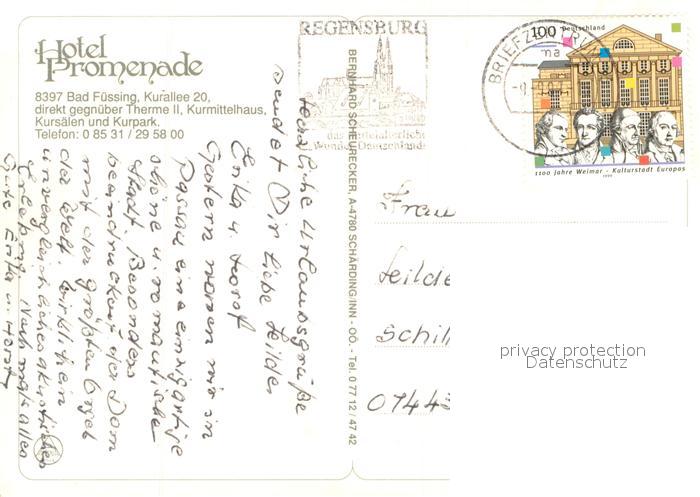 Hotel
Promenade
8397 Bad Füssing, Kurallee 20,
direkt gegnüber Therme II, Kurmittelhaus,
Kursälen und Kurpark.
Telefon: 0 85 31 / 29 58 00
REGENSBURG
das mittelalterliche
Wunder Deutschlands
BRIEFZENTRUM
100 Deutschland
1100 Jahre Weimar - Kulturstadt Europas
1999
BERNHARD SCHEURECKER, A-4780 SCHÄRDING/INN - OÖ. - Tel. 0 77 12 / 47 42
Herzliche Urlaubsgrüße
sendet Dir liebe Hilde
Erika u. Horst
Gestern waren wir in
Passau eine einzigartige
schöne u. romantische
Stadt Besonders
beeindruckt der Dom
mit der größten Orgel
der Welt. Wirklich ein
unvergleichliches akustisches
Erlebnis. Nochmals alles
Gute Erika u. Horst
Frau
Hilde
Schil
07443
privacy protection
Datenschutz